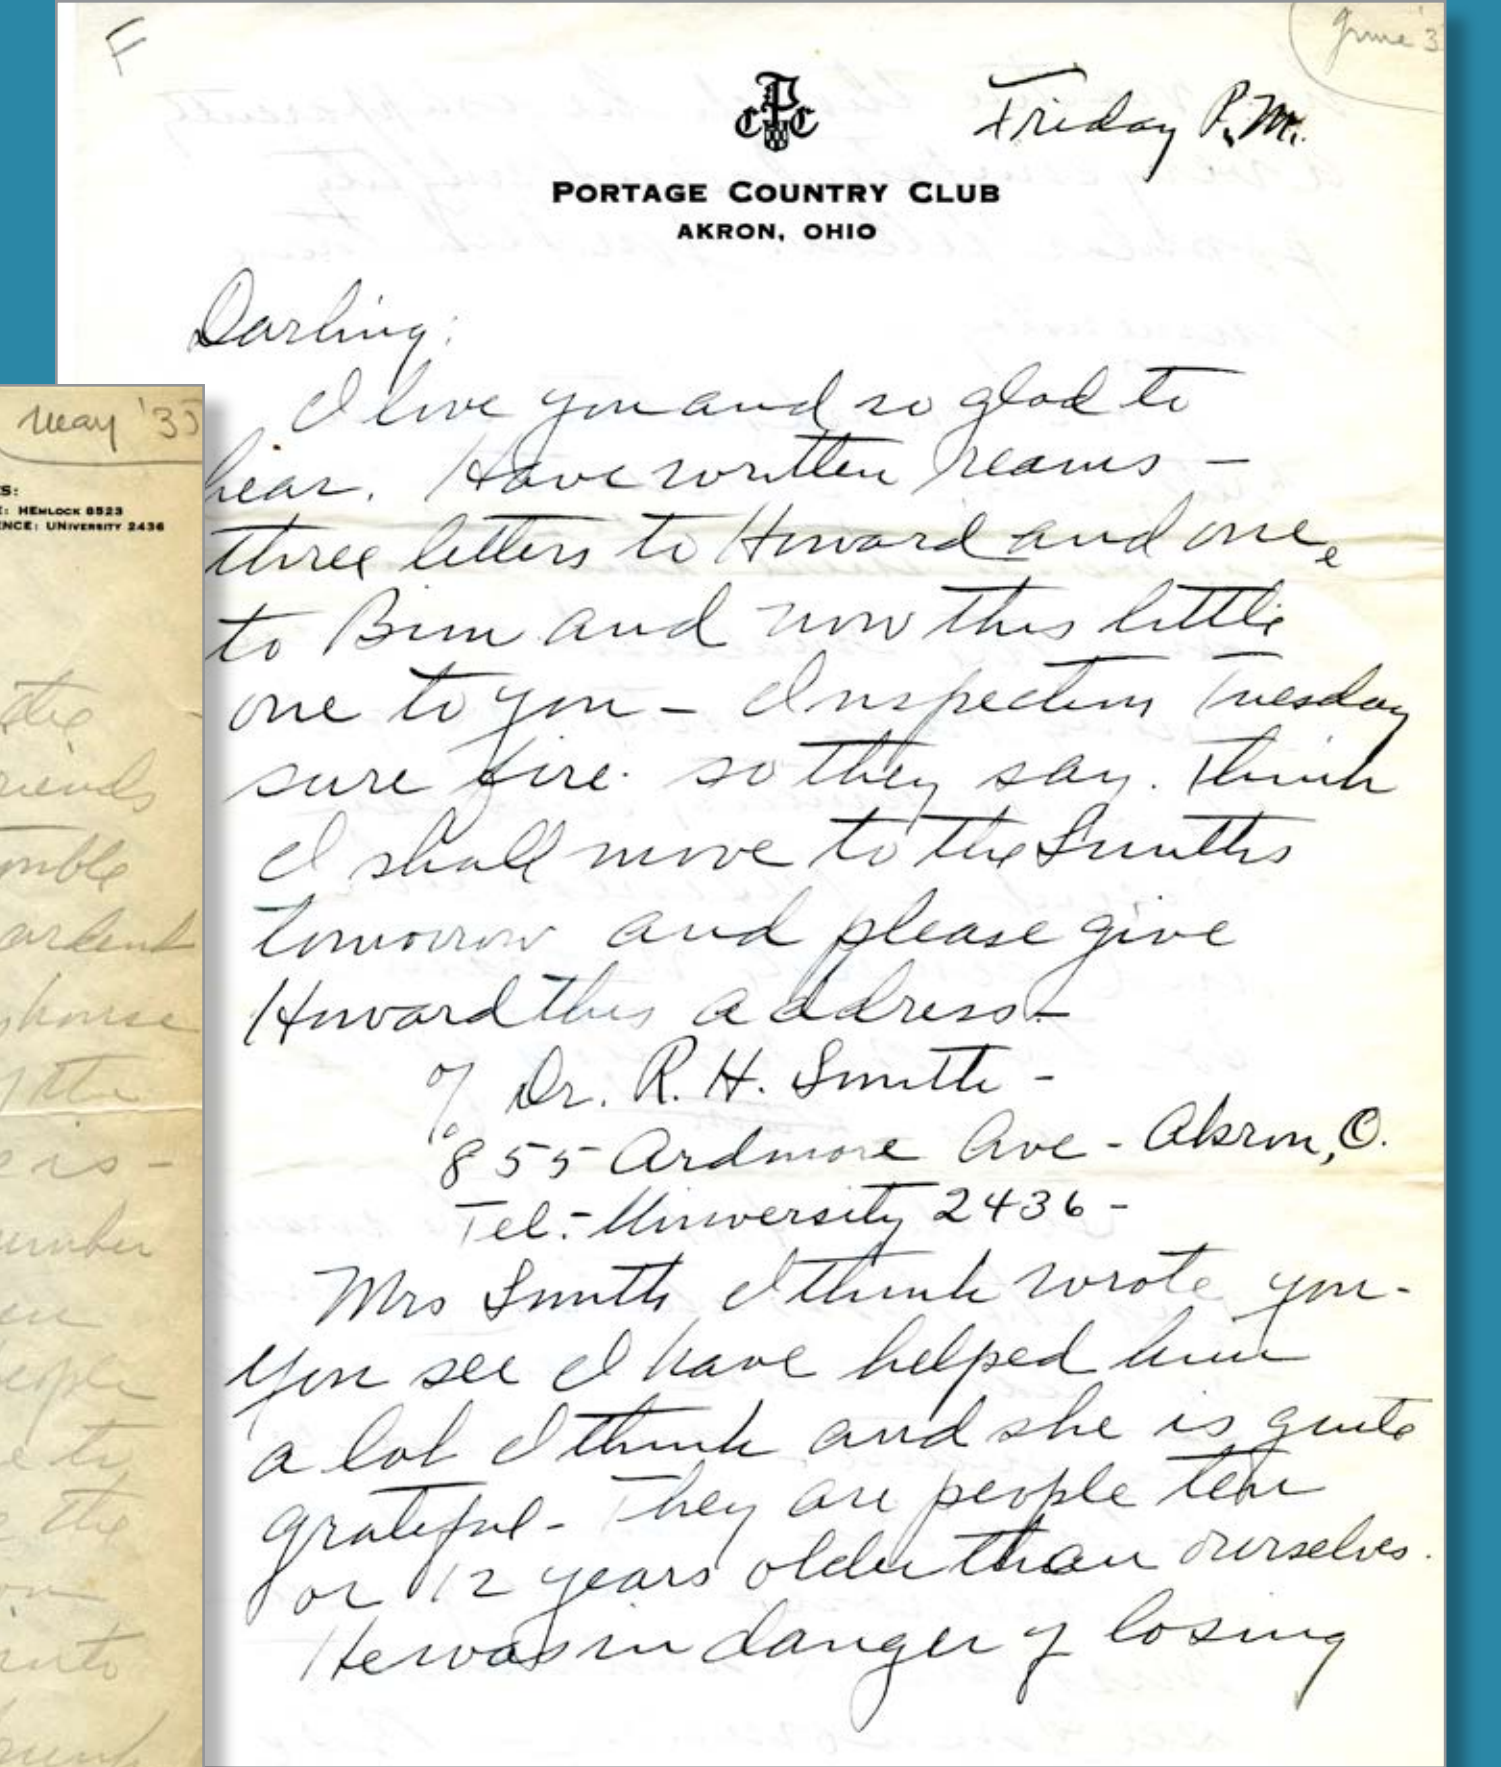 F
June '3
Friday P.M.
CPC
PORTAGE COUNTRY CLUB
AKRON, OHIO
Darling:
I love you and so glad to
hear. Have written reams –
three letters to Howard and one
to Bim and now this little
one to you – Inspection Tuesday
sure fire. so they say. Think
I shall move to the Smiths
tomorrow and please give
Howard this address –
% Dr. R. H. Smith –
855 Ardmore Ave – Akron, O.
Tel. – University 2436 –
Mrs Smith I think wrote you –
You see I have helped him
a lot I think and she is quite
grateful – They are people ten
or 12 years older than ourselves.
He was in danger of losing
May '35
S:
E: HEMLOCK 8523
ENCE: UNIVERSITY 2436
the
riends
ardent
house
the
is –
ember
people
to
the
on
into